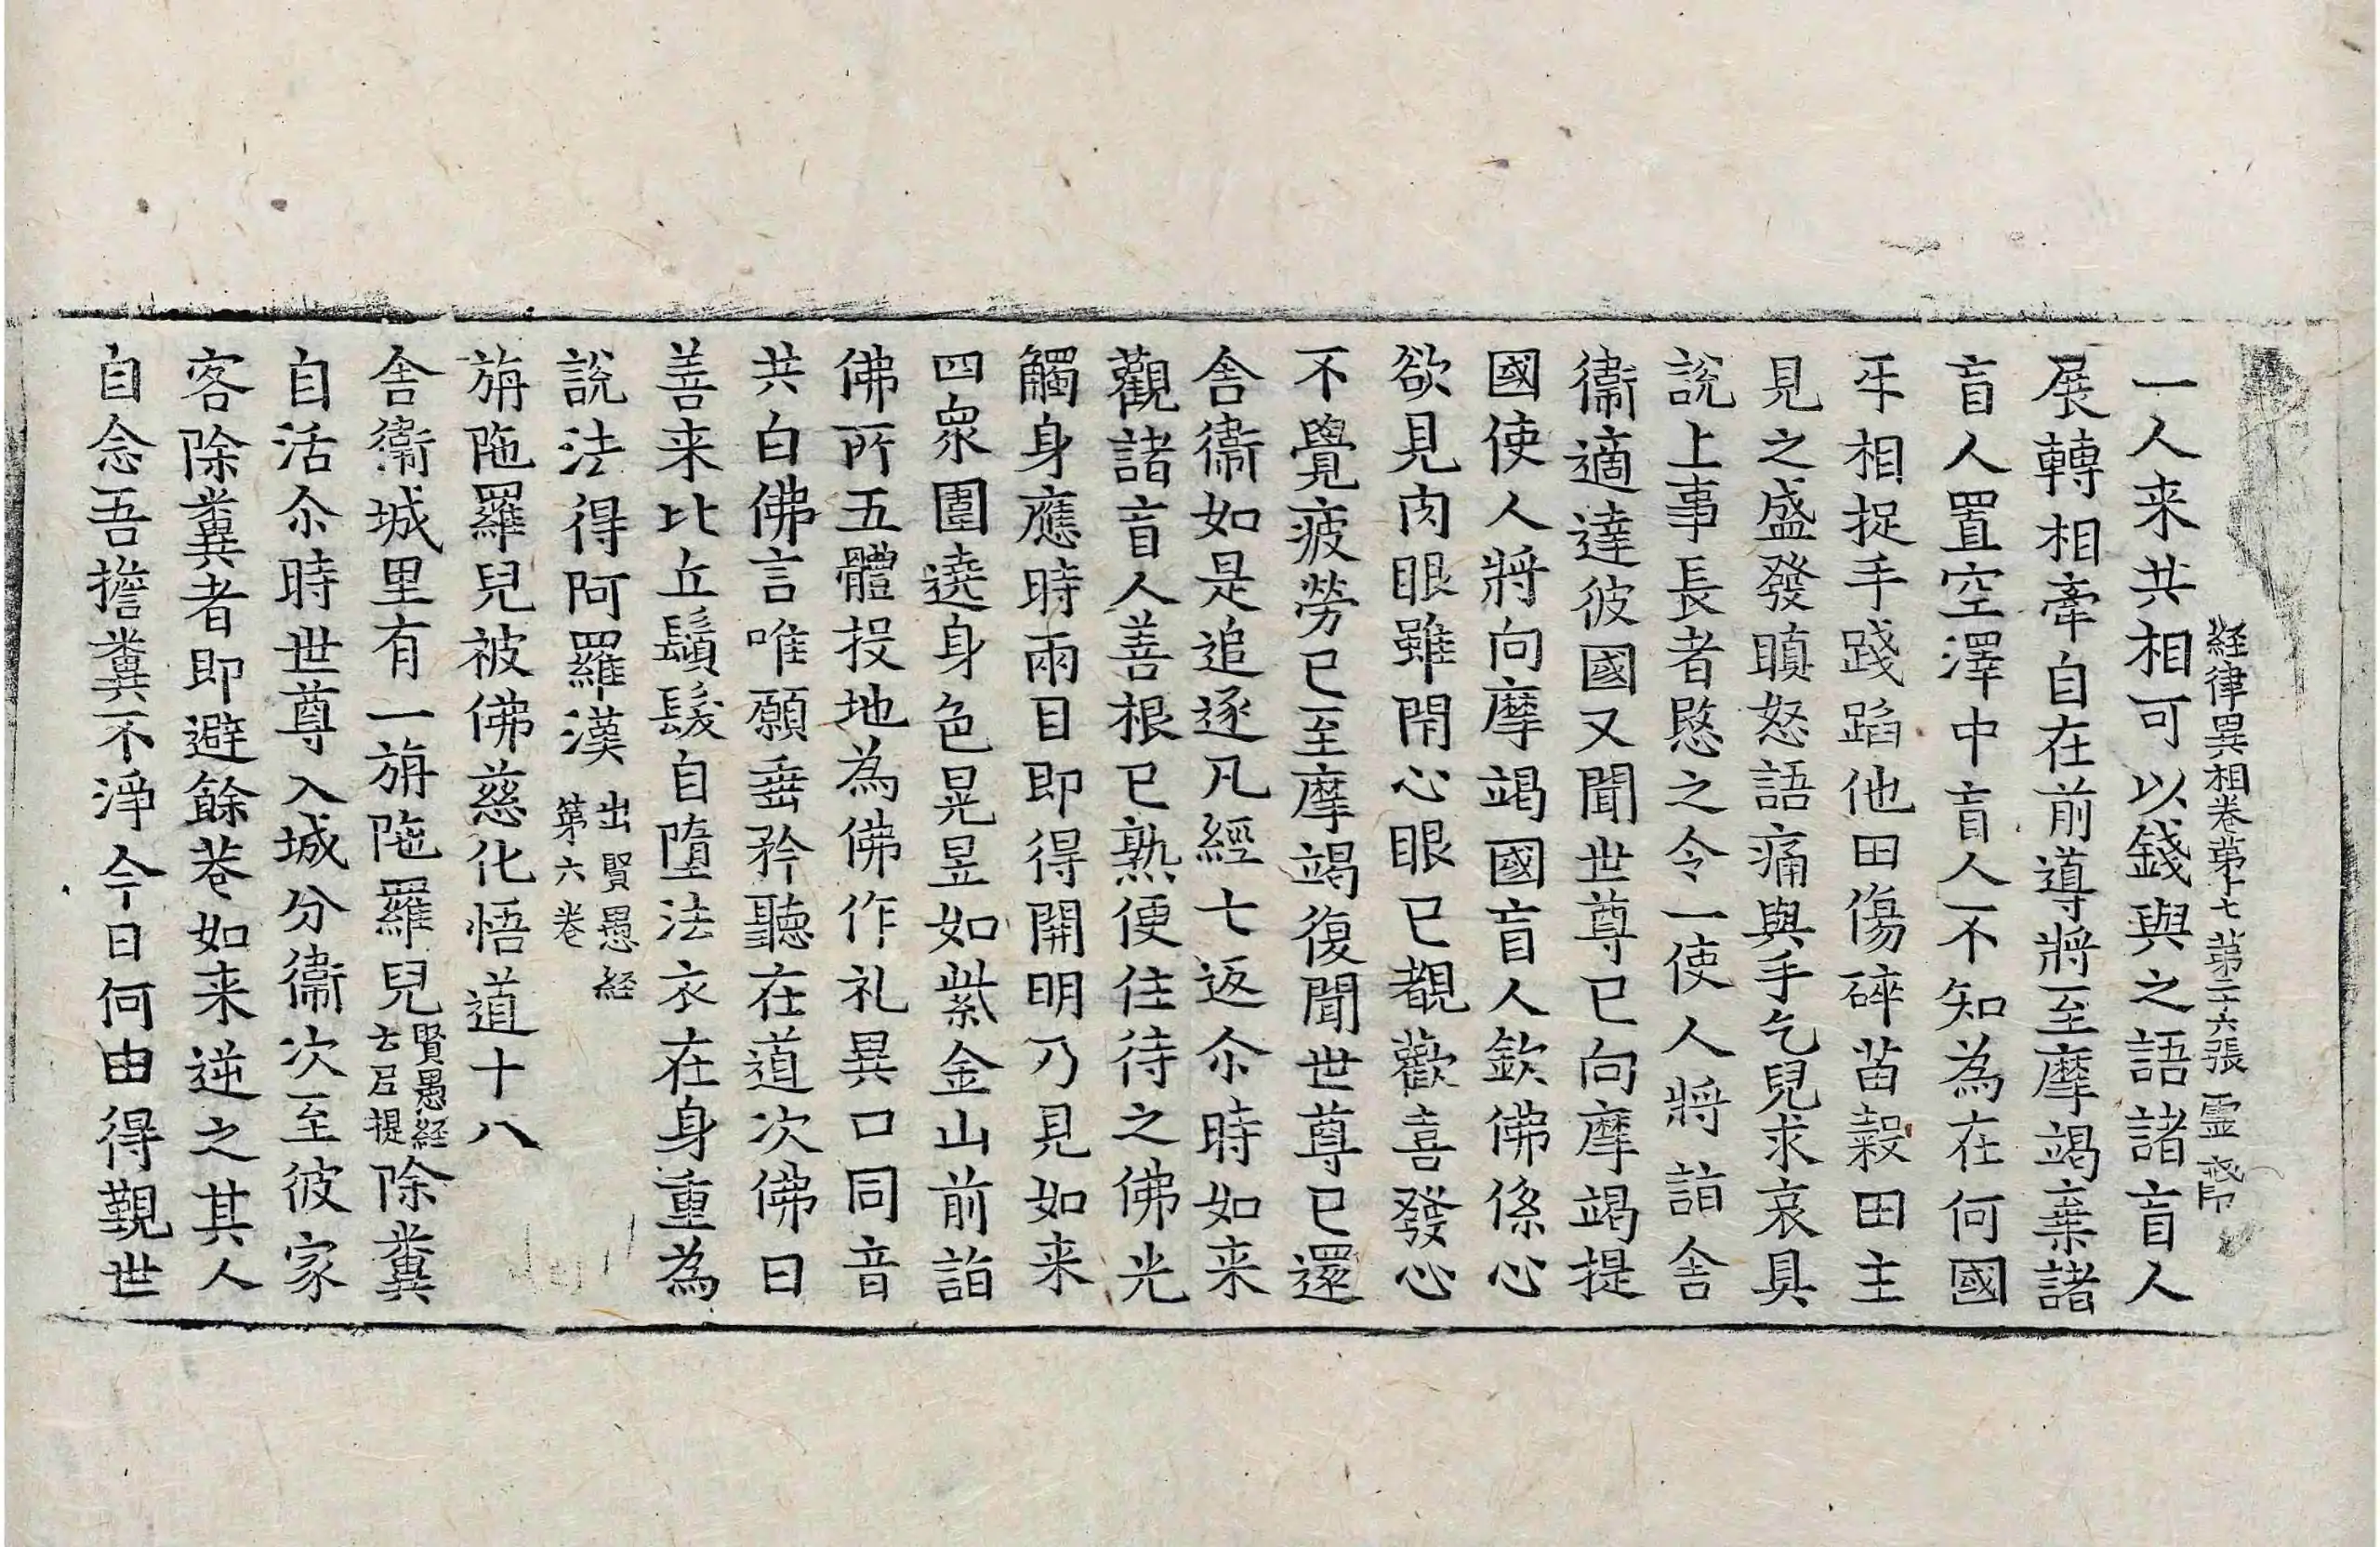 経律異相卷第十七 第二十六張 霊
一人来共相可以錢與之語諸盲人
展轉相牽自在前導將至摩竭棄諸
盲人置空澤中盲人不知為在何國
乑相捉手踐蹈他田傷碎苗穀田主
見之盛發瞋怒語痛與手乞兒求哀具
說上事長者愍之令一使人將詣舍
衞適達彼國又聞世尊已向摩竭提
國使人將向摩竭國盲人欽佛係心
欲見肉眼雖閇心眼已覩歡喜發心
不覺疲勞已至摩竭復聞世尊已還
舍衞如是追逐凡經七返尒時如来
觀諸盲人善根已熟便住待之佛光
觸身應時兩目即得開明乃見如来
四衆圍遶身色晃昱如紫金山前詣
佛所五體投地為佛作礼異口同音
共白佛言唯願垂矜聽在道次佛曰
善来比丘鬚髮自墮法衣在身重為
說法得阿羅漢 出賢愚経第六卷
旃陁羅兒被佛慈化悟道十八
舍衞城里有一旃陁羅兒 賢愚経云尼提 除糞
自活尒時世尊入城分衞次至彼家
客除糞者即避餘巷如来逆之其人
自念吾擔糞不淨今日何由得覲世